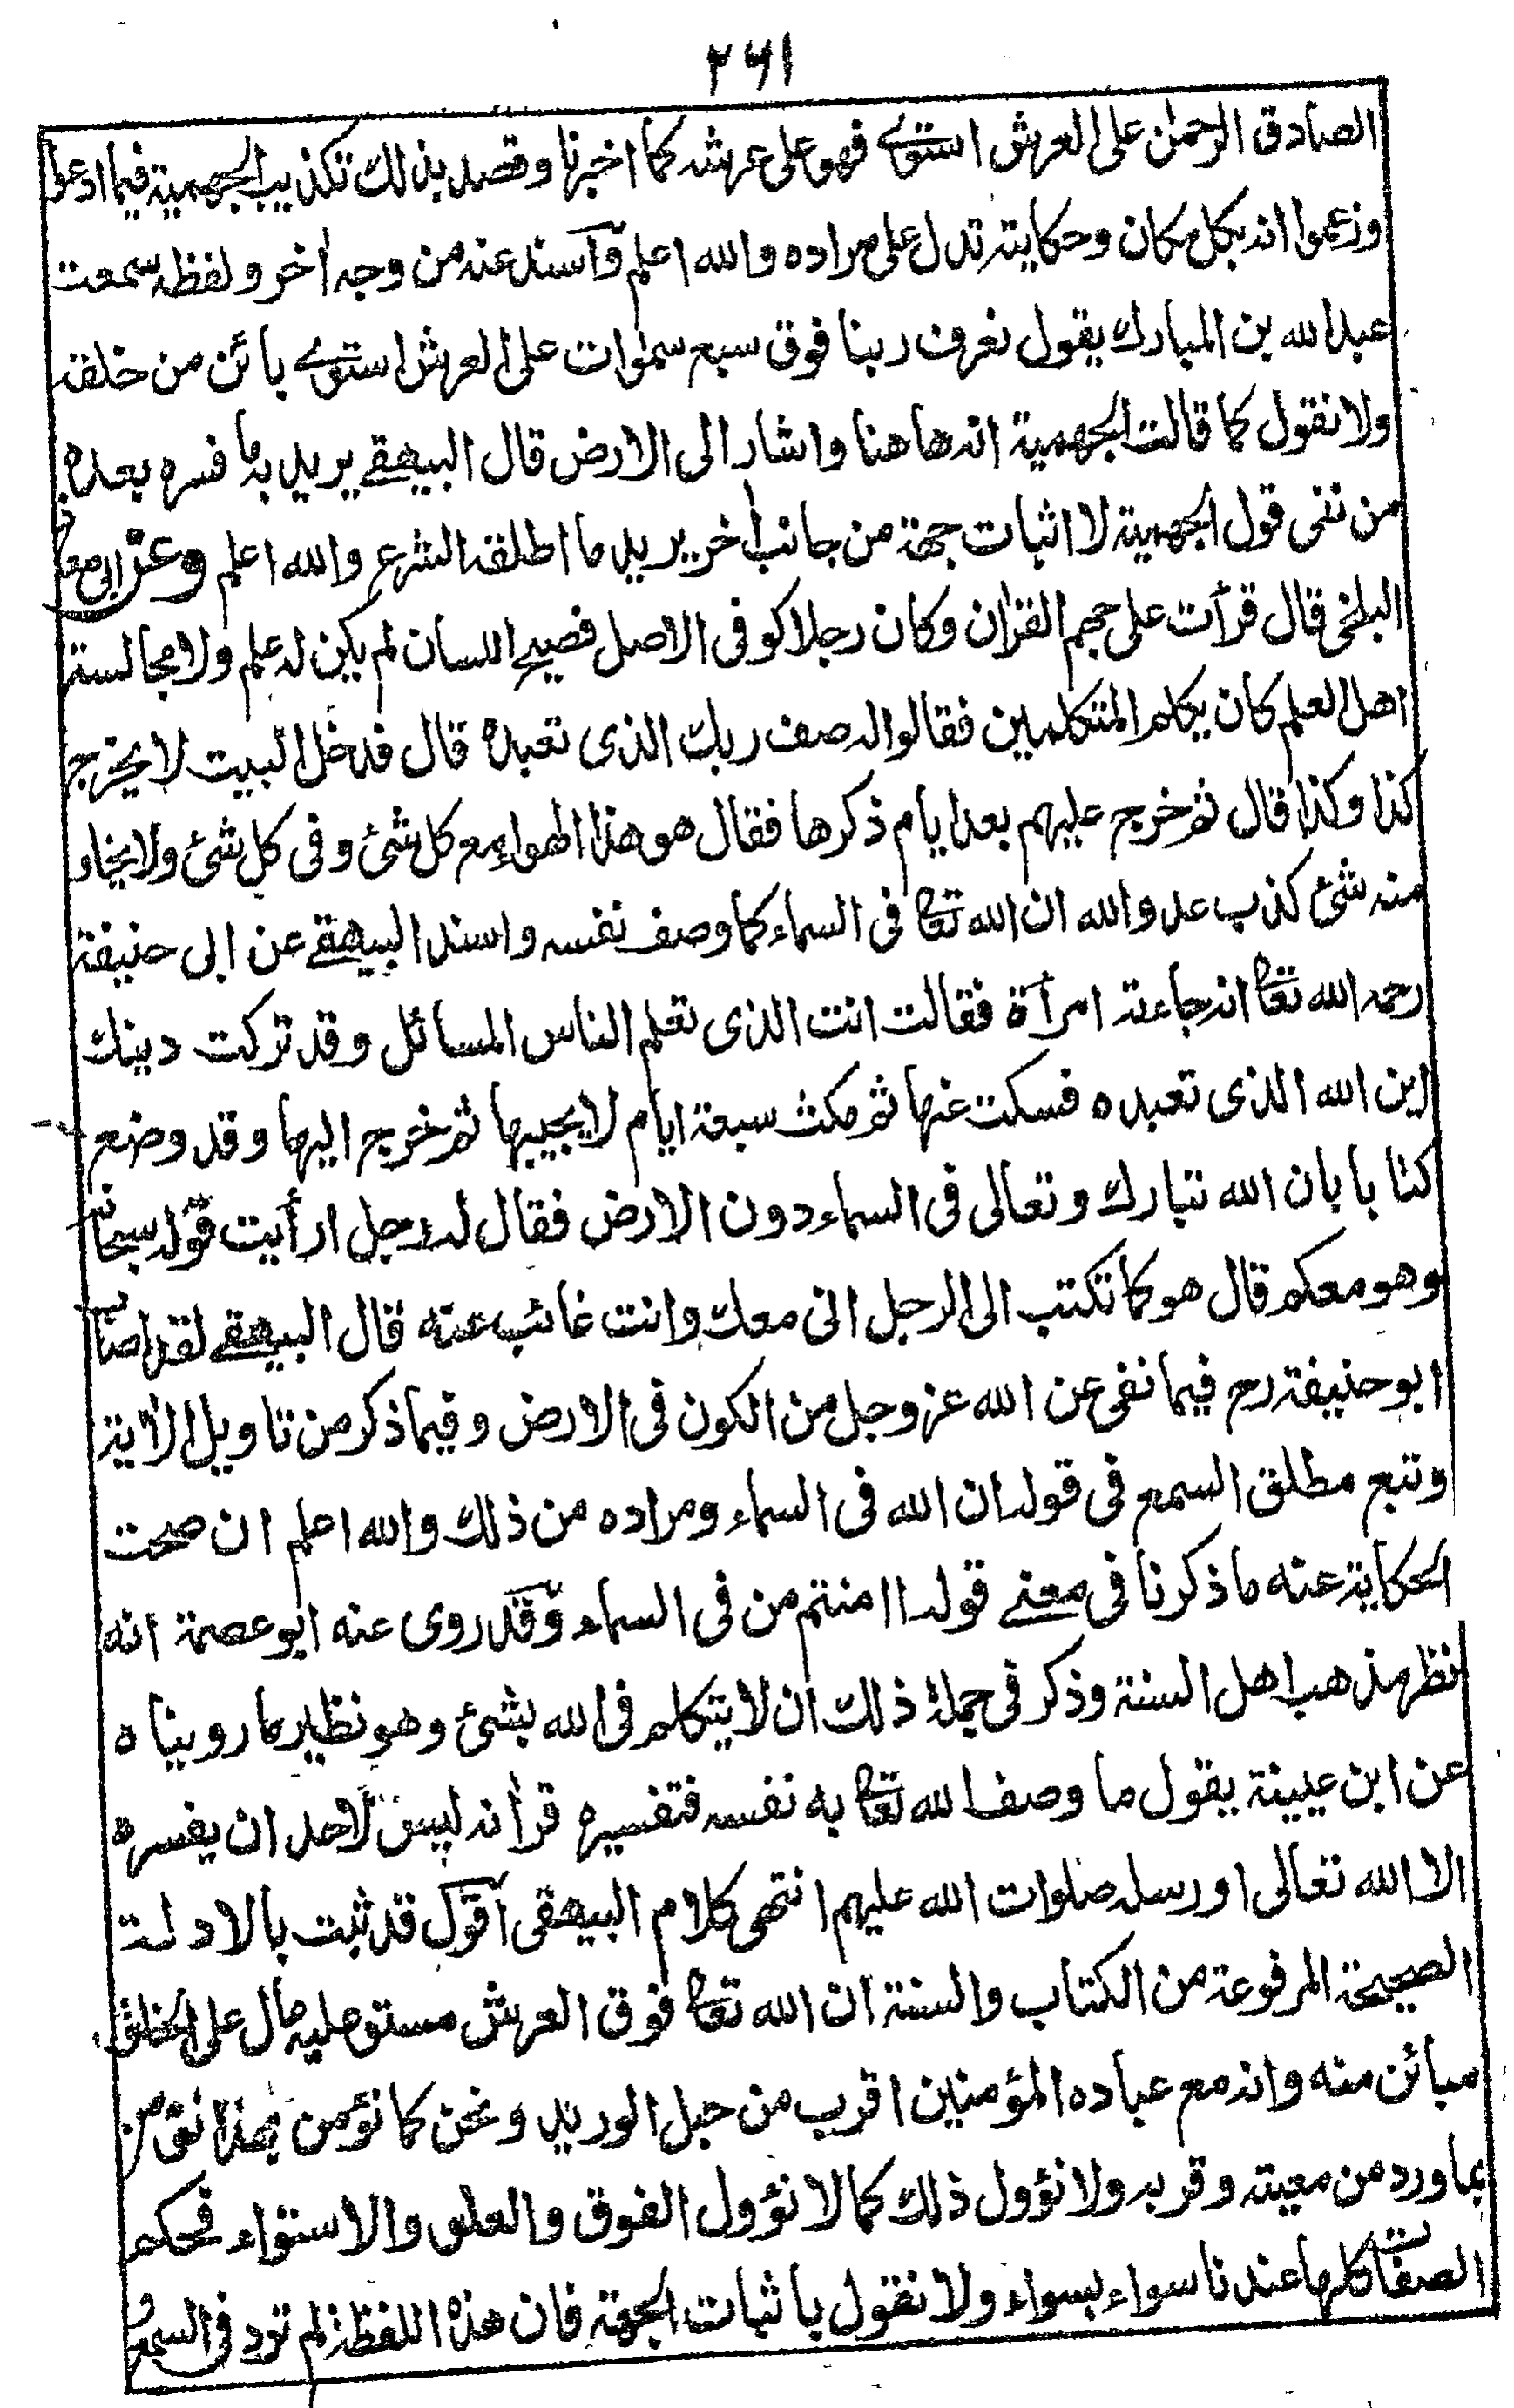 ٢٦١
الصادق الرحمٰن على العرش استوے فهو على عرشه كما اخبرنا وقصد بذلك تكذيب الجهمية فيما ادعوا
وزعموا انه بكل مكان وحكايته تدل على مراده والله اعلم وآسند عنه من وجه اٰخر ولفظه سمعت
عبدالله بن المبارك يقول نعرف ربنا فوق سبع سمٰوات على العرش استوے بائن من خلقه
ولا نقول كما قالت الجهمية انه هاهنا واشار الى الارض قال البيهقے يريد به ما فسره بعده
من نفى قول الجهمية لا اثبات جهة من جانب اٰخر يريد ما اطلقه الشرع والله اعلم وعن ابى معاذ
البلخى قال قرأت على جهم القراٰن وكان رجلا كوفى الاصل فصيح اللسان لم يكن له علم ولا مجالسة
اهل العلم كان يكلم المتكلمين فقالوا له صف ربك الذى تعبده قال فدخل البيت لا يخرج
كذا وكذا قال ثم خرج عليهم بعد ايام ذكرها فقال هو هذا الهواء مع كل شئ وفى كل شئ ولا يخلو
منه شئ كذب عدو والله ان الله تعالى فى السماء كما وصف نفسه واسند البيهقے عن ابى حنيفة
رحمه الله تعالى انه جاءته امرأة فقالت انت الذى تعلم الناس المسائل وقد تركت دينك
اين الله الذى تعبده فسكت عنها ثم مكث سبعة ايام لا يجيبها ثم خرج اليها وقد وضع
كتابا بان الله تبارك وتعالى فى السماء دون الارض فقال له رجل ارأيت قوله سبحانه
وهو معكم قال هو كما تكتب الى الرجل انى معك وانت غائب عنه قال البيهقے لقد اصاب
ابو حنيفة رح فيما نفى عن الله عز وجل من الكون فى الارض وفيما ذكر من تاويل الاٰية
وتبع مطلق السمع فى قوله ان الله فى السماء ومراده من ذلك والله اعلم ان صحت
الحكاية عنه ما ذكرنا فى معنے قوله اامنتم من فى السماء وقد روى عنه ابو عصمة انه
نظر مذهب اهل السنة وذكر فى جملة ذلك ان لا يتكلم فى الله بشئ وهو نظير ما رويناه
عن ابن عيينة يقول ما وصف الله تعالى به نفسه فتفسيره قرأنه ليس لاحد ان يفسره
الا الله تعالى او رسله صلوات الله عليهم انتهى كلام البيهقى اقول قد ثبت بالادلة
الصحيحة المرفوعة من الكتاب والسنة ان الله تعالى فوق العرش مستو عليه عال على الخلق
مبائن منه وانه مع عباده المؤمنين اقرب من حبل الوريد ونحن كما نؤمن بهذا نؤمن
بما ورد من معيته وقربه ولا نؤول ذلك كما لا نؤول الفوق والعلو والاستواء فحكم
الصفات كلها عندنا سواء بسواء ولا نقول باثبات الجهة فان هذه اللفظة لم ترد فى السمع